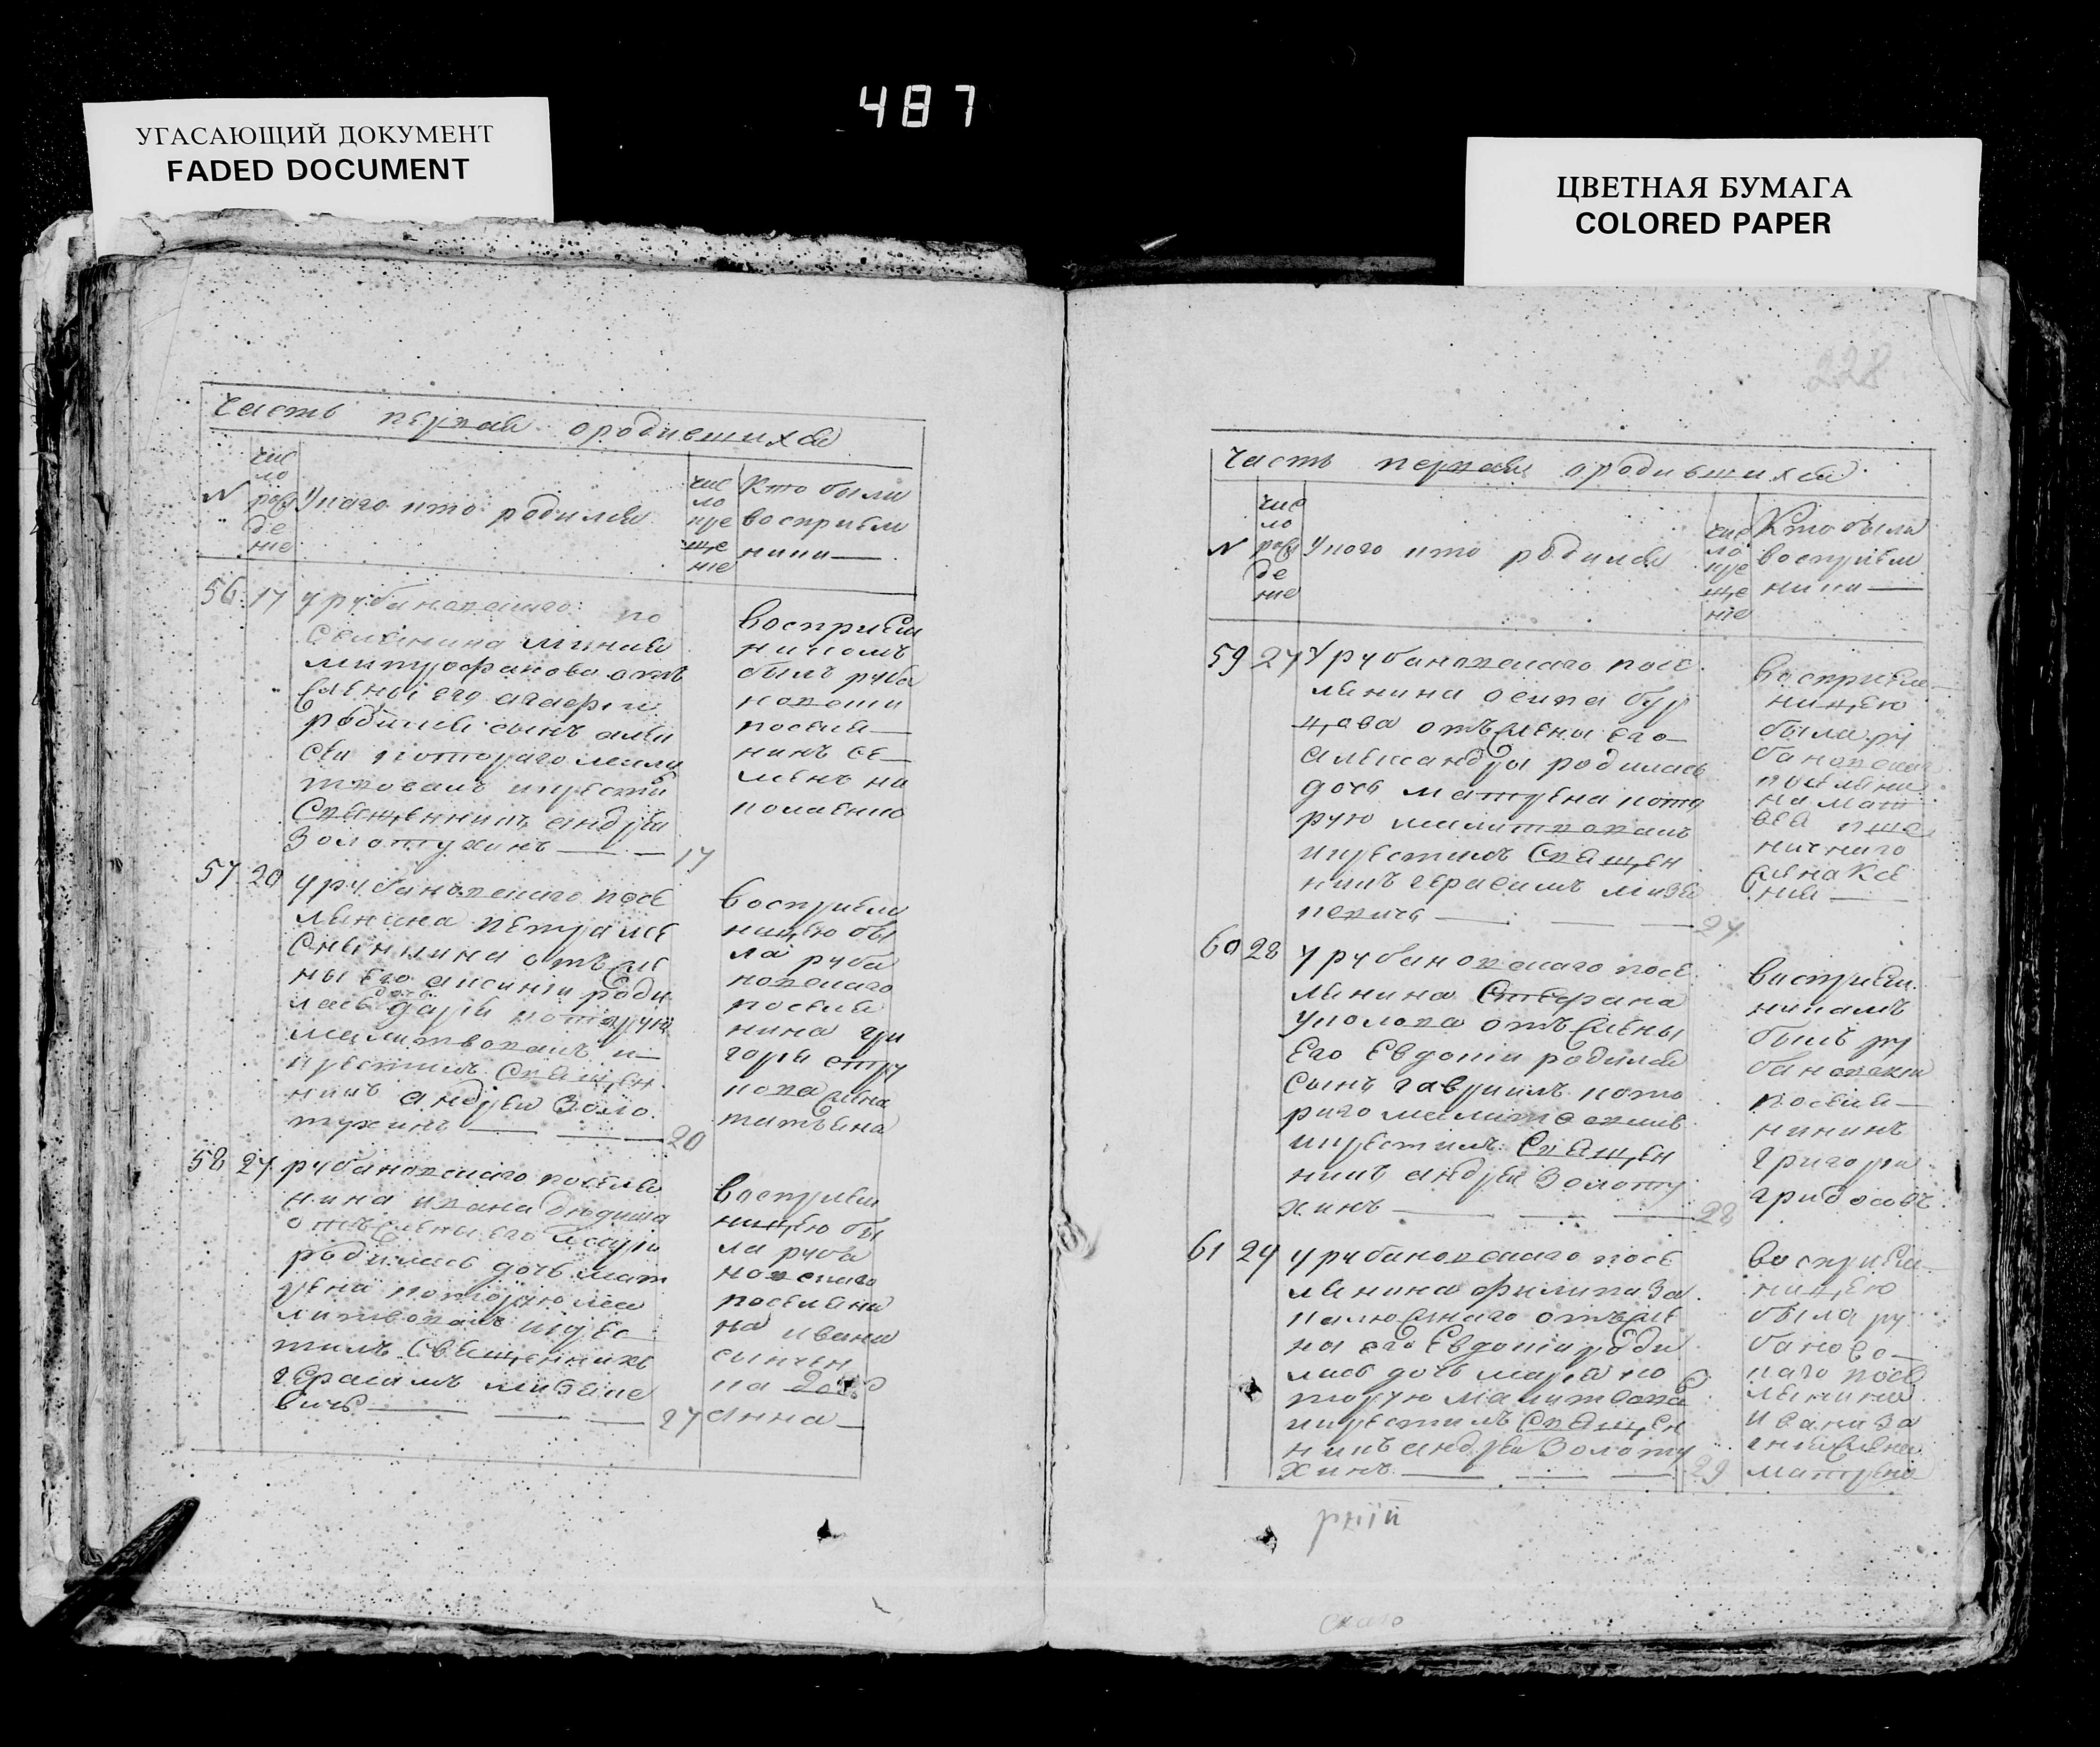 487
УГАСАЮЩИЙ ДОКУМЕНТ
FADED DOCUMENT
ЦВЕТНАЯ БУМАГА
COLORED PAPER
228
часть первая ородившихся
N
чис
ло
рож
де
ние
У каго кто родился
чис
ло
кре
ще
ние
Кто были
восприем
ники
56 17 у рубановскаго по
селенина миная
митрофанова отъ
жены его агафіи
родился сынъ
котораго моли
твовалъ и крестил
Священникъ андрей
Золотухинъ 17
восприем
никомъ
былъ руба
новски
поселе
нинъ се
менъ
57 20 у рубановскаго посе
ленина петра
отъ же
ны его ксиніи роди
лась дочь дарія которую
молитвовалъ и
крестилъ Священ
никъ андрей Золо
тухинъ 20
восприем
ницею бы
ла руба
новскаго
поселе
нина гри
горія
жена
татьяна
58 27 рубановскаго поселе
нина ивана
отъ жены его
родилась дочь мат
рена которую мо
литвовалъ и крес
тилъ Священникъ
герасимъ
вичъ 27
восприем
ницею бы
ла руба
новскаго
поселени
на ивана
дочь
Анна
часть первая ородившихся
N
чис
ло
рож
де
ние
У кого кто родился
чис
ло
кре
ще
ние
Кто были
восприем
ники
59 27 У рубановскаго посе
ленина осипа бур
цова отъ жены его
александры родилась
дочь матрена кото
рую молитвовалъ
и крестилъ Священ
никъ герасимъ
27
восприем
ницею
была ру
бановскаг
поселени
на мат
вея
жена Ксе
ния
60 28 у рубановскаго посе
ленина Стефана
отъ жены
Его Евдокіи родился
сынъ гавриилъ кото
раго
крестилъ Священ
никъ андрей Золоту
хинъ 28
восприем
никамъ
былъ ру
бановски
поселе
нинъ
григори
61 29 у рубановскаго посе
ленина филипа За
отъ же
ны его Евдокіи роди
лась дочь марѳа ко
торую молитвова
крестилъ Священ
никъ андрей Золоту
хинъ 29
восприем
ницею
была ру
посе
ленина
ивана
жена
матрена